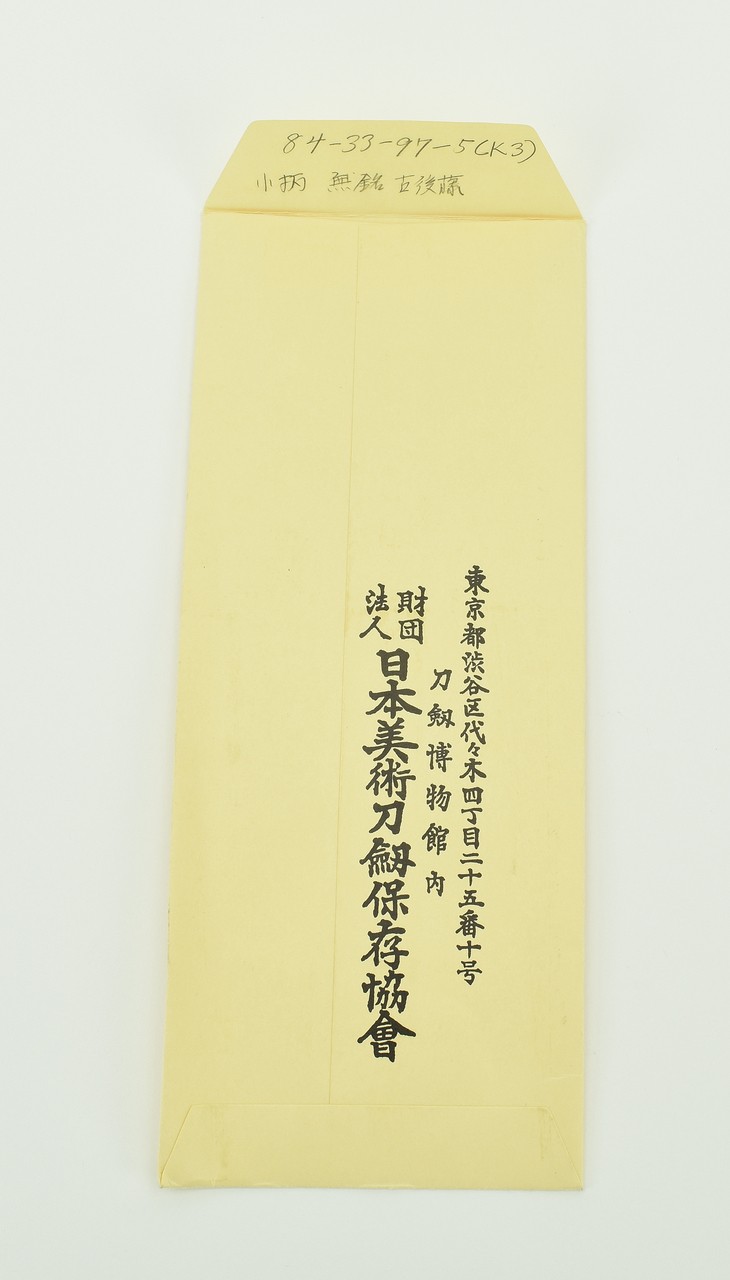 84-33-97-5(K3)
小柄 無銘 古後藤
東京都渋谷区代々木四丁目二十五番十号
刀劔博物館内
財団
法人
日本美術刀劔保存協會